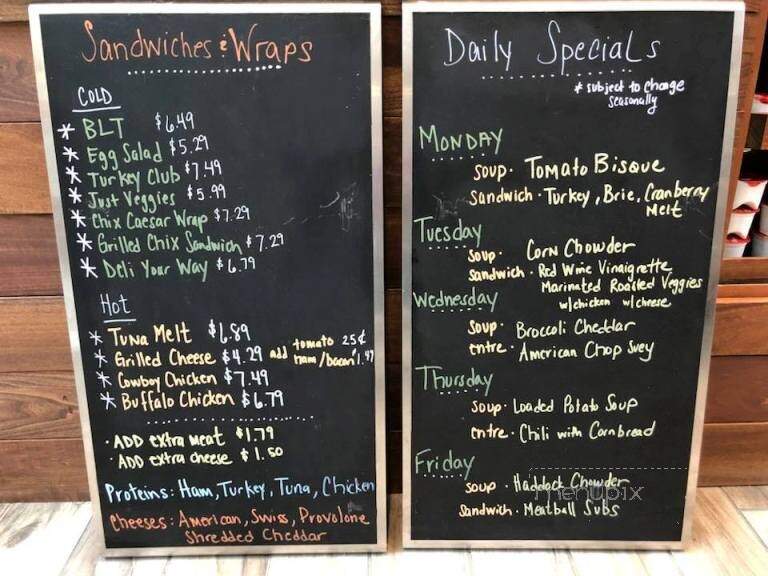 Sandwiches & Wraps
COLD
* BLT $6.49
* Egg Salad $5.29
* Turkey Club $7.49
* Just Veggies $5.99
* Chix Caesar Wrap $7.29
* Grilled Chix Sandwich $7.29
* Deli Your Way $6.79
Hot
* Tuna Melt $6.89
* Grilled Cheese $4.29 add tomato 25¢
ham/bacon 1.49
* Cowboy Chicken $7.49
* Buffalo Chicken $6.79
· ADD extra meat $1.79
· ADD extra cheese $1.50
Proteins: Ham, Turkey, Tuna, Chicken
Cheeses: American, Swiss, Provolone
Shredded Cheddar
Daily Specials
* subject to change
seasonally
MONDAY
soup · Tomato Bisque
sandwich · Turkey, Brie, Cranberry
Melt
Tuesday
soup · Corn Chowder
sandwich · Red Wine Vinaigrette
Marinated Roasted Veggies
w/chicken w/cheese
Wednesday
soup · Broccoli Cheddar
entre · American Chop Suey
Thursday
soup · Loaded Potato Soup
entre · Chili with Cornbread
Friday
soup · Haddock Chowder
sandwich · Meatball Subs
menupix